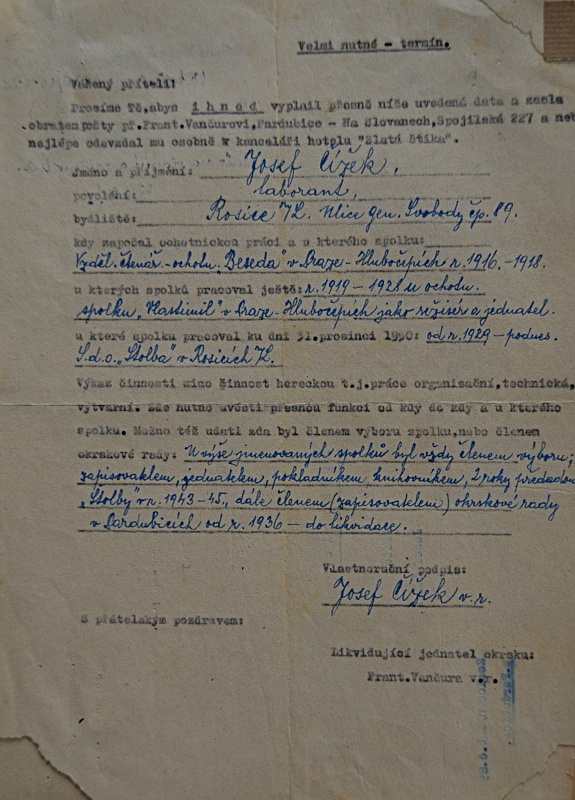 Velmi nutné - termín.
Vážený příteli!
Prosíme Tě, abys ihned vyplnil přesně níže uvedená data a zaslal
obratem pošty př. Frant. Vančurovi, Pardubice - Na Slovanech, Spojilská 227 a neb
nejlépe odevzdal mu osobně v kanceláři hotelu "Zlatá štika".
Jméno a příjmení: Josef Čížek,
povolání: laborant,
bydliště: Rosice n/L. Ulice gen. Svobody čp. 89.
kdy započal ochotnickou práci a u kterého spolku:
Vzděl. čtenář.-ochotn. "Beseda" v Praze-Hlubočepích r. 1916.-1918.
u kterých spolků pracoval ještě: r. 1919 - 1928 u ochotn.
spolku "Vlastimil" v Praze-Hlubočepích jako režisér a jednatel.
u které spolku pracoval ku dni 31.prosinci 1950: od r. 1929 - podnes.
S.d.o. "Stolba" v Rosicích n/L.
Výkaz činnosti mimo činnost hereckou t.j.práce organisační, technická,
výtvarní. Zde nutno uvésti přesnou funkci od kdy do kdy a u kterého
spolku. Možno též udati zda byl členem výboru spolku, nebo členem
okrskové rady: U výše jmenovaných spolků byl vždy členem výboru;
zapisovatelem, jednatelem, pokladníkem, knihovníkem, 2 roky předsedou
"Stolby" v r. 1943-45, dále členem (zapisovatelem) okrskové rady
v Pardubicích od r. 1936 - do likvidace.
Vlastnoruční podpis:
Josef Čížek v.r.
S přátelským pozdravem:
Likvidující jednatel okrsku:
Frant.Vančura v.r.